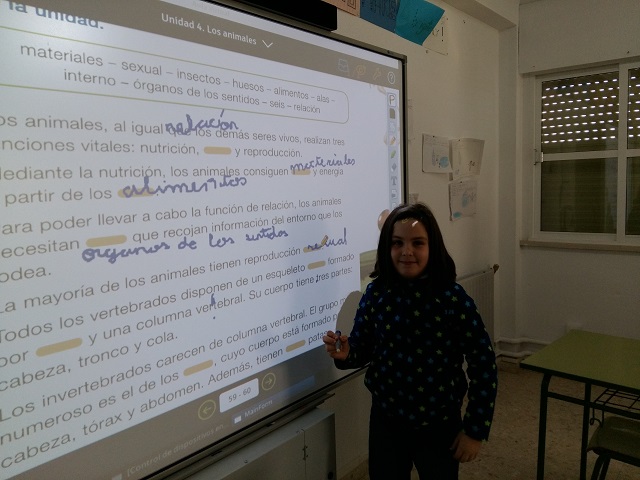 la unidad.
Unidad 4. Los animales
materiales – sexual – insectos – huesos – alimentos – alas –
interno – órganos de los sentidos – seis – relación
os animales, al igual relación los demás seres vivos, realizan tres
nciones vitales: nutrición, y reproducción.
ediante la nutrición, los animales consiguen materiales y energía
partir de los alimentos
ara poder llevar a cabo la función de relación, los animales
ecesitan que recojan información del entorno que los
odea. organos de los sentidos
La mayoría de los animales tienen reproducción sexual
Todos los vertebrados disponen de un esqueleto formado
por y una columna vertebral. Su cuerpo tiene tres partes:
cabeza, tronco y cola.
Los invertebrados carecen de columna vertebral. El grupo
numeroso es el de los , cuyo cuerpo está formado
cabeza, tórax y abdomen. Además, tienen
59 - 60